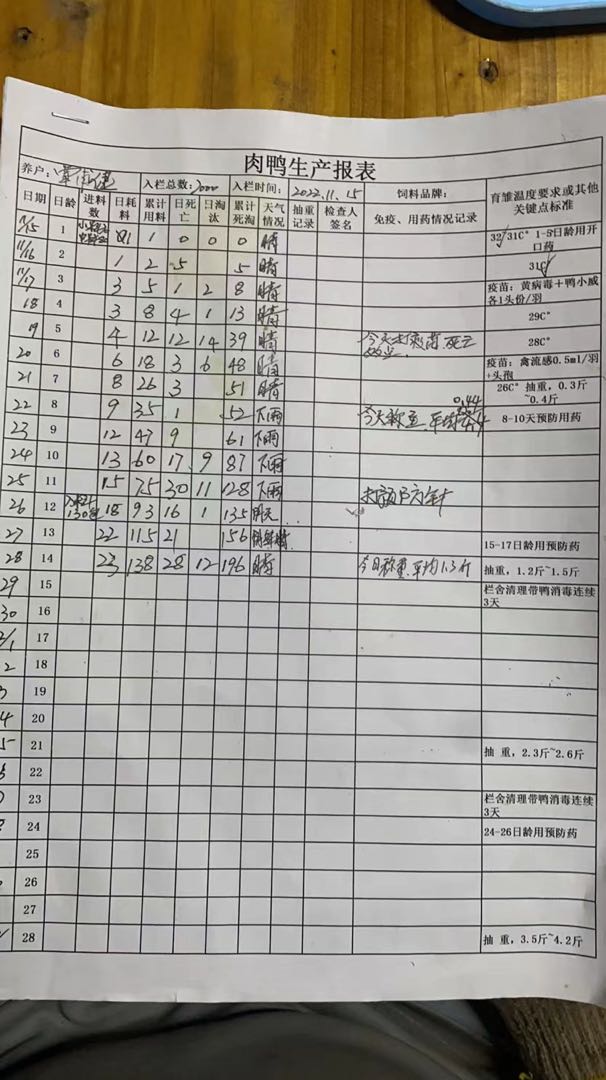 肉鸭生产报表
养户: 入栏总数: 7000 入栏时间: 2022.11.15 饲料品牌: 育雏温度要求或其他关键点标准
日期 日龄 进料数 日耗料 累计用料 日死亡 日淘汰 累计死淘 天气情况 抽重记录 检查人签名 免疫、用药情况记录
11/15 1 1 0 0 0 晴 32/31C° 1-5日龄用开口药
11/16 2 1 2 5 5 晴 31C°
11/17 3 3 5 1 2 8 晴 疫苗：黄病毒+鸭小威各1头份/羽
18 4 3 8 4 1 13 晴 29C°
19 5 4 12 12 14 39 晴 28C°
20 6 6 18 3 6 48 晴 疫苗：禽流感0.5ml/羽+头孢
21 7 8 26 3 51 晴 26C° 抽重，0.3斤~0.4斤
22 8 9 35 1 52 下雨 今天称重，平均 0.44 8-10天预防用药
23 9 12 47 9 61 下雨
24 10 13 60 17 9 87 下雨
25 11 15 75 30 11 128 下雨
26 12 18 93 16 1 135 阴天
27 13 22 115 21 156 15-17日龄用预防药
28 14 23 138 28 12 196 晴 今日称重，平均1.3斤 抽重，1.2斤~1.5斤
29 15 栏舍清理带鸭消毒连续3天
30 16
17
2 18
3 19
4 20
5 21 抽 重，2.3斤~2.6斤
22
23 栏舍清理带鸭消毒连续3天
24 24-26日龄用预防药
25
26
27
28 抽 重，3.5斤~4.2斤